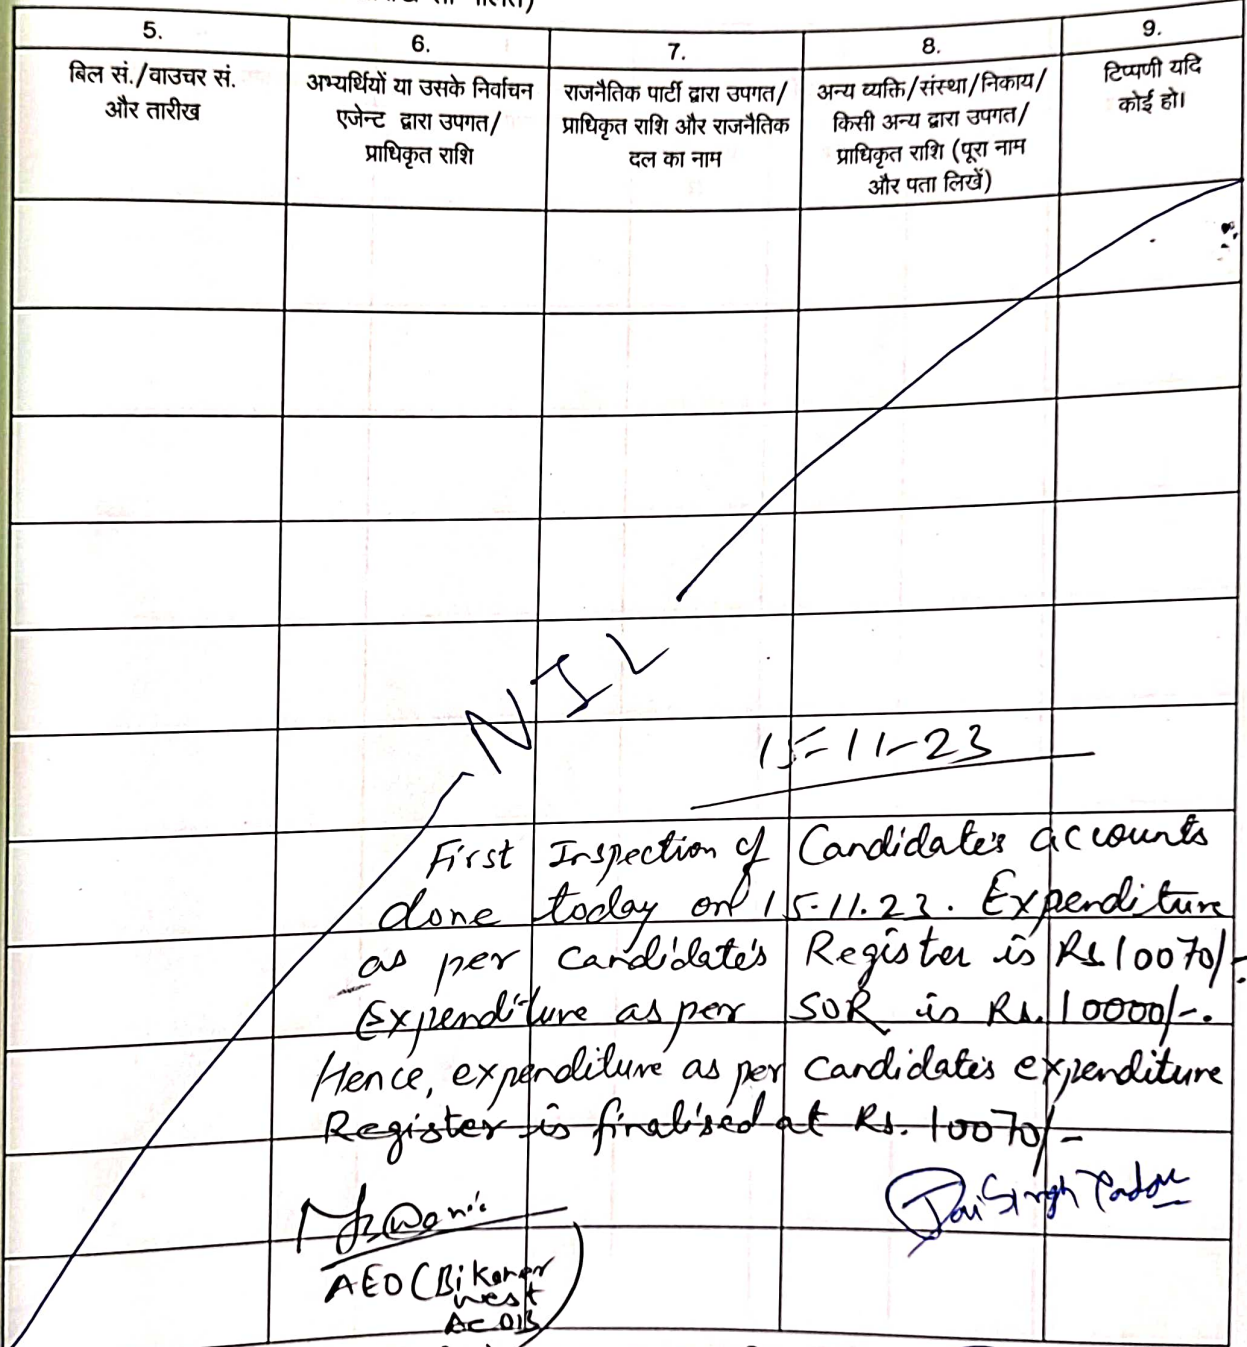 5.
6.
7.
8.
9.
बिल सं./वाउचर सं.
और तारीख
अभ्यर्थियों या उसके निर्वाचन
एजेन्ट द्वारा उपगत/
प्राधिकृत राशि
राजनैतिक पार्टी द्वारा उपगत/
प्राधिकृत राशि और राजनैतिक
दल का नाम
अन्य व्यक्ति/संस्था/निकाय/
किसी अन्य द्वारा उपगत/
प्राधिकृत राशि (पूरा नाम
और पता लिखें)
टिप्पणी यदि
कोई हो।
NIL
15-11-23
First Inspection of Candidate's accounts
done today on 15.11.23. Expenditure
as per candidate's Register is Rs.10070/-
Expenditure as per SOR is Rs. 10000/-.
Hence, expenditure as per candidate's expenditure
Register is finalised at Rs. 10070/-
Jai Singh Yadav
AEO (Bikaner
west
AC 013)